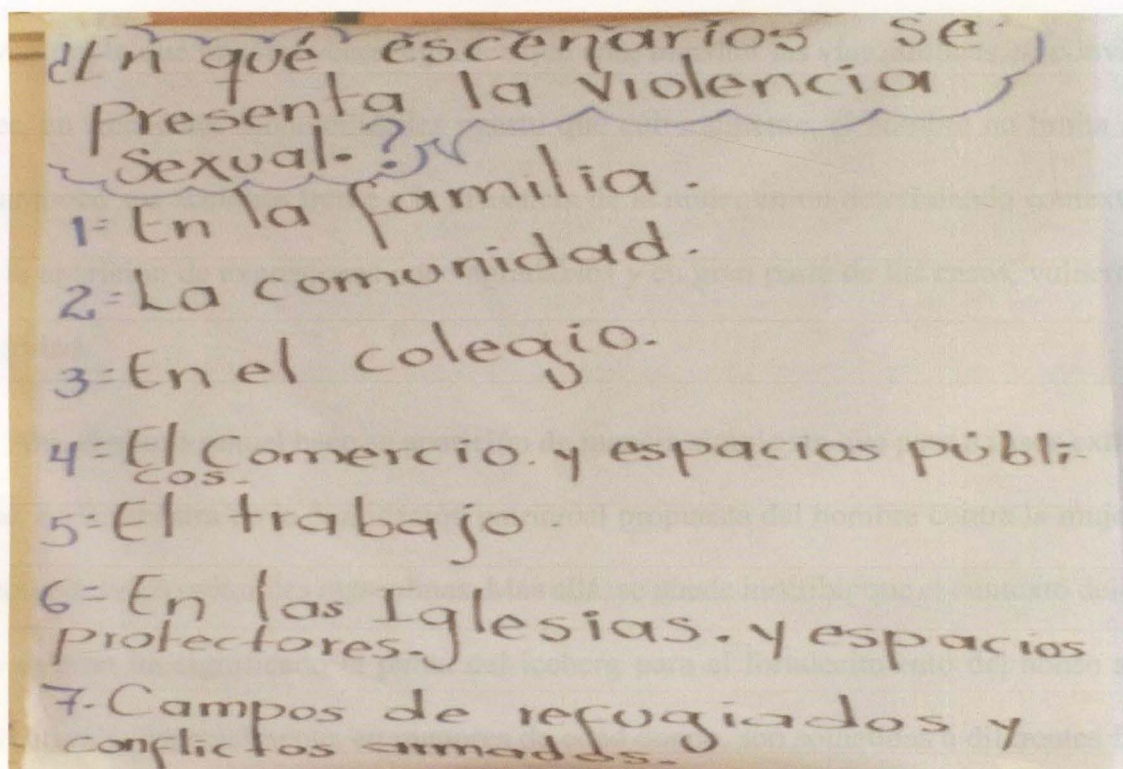 ¿En qué escenarios se
Presenta la violencia
Sexual.?
1= En la familia.
2= La comunidad.
3= En el colegio.
4= El Comercio. y espacios públi-
cos.
5= El trabajo
6= En las Iglesias. y espacios
Protectores.
7.- Campos de refugiados y
conflictos armados.